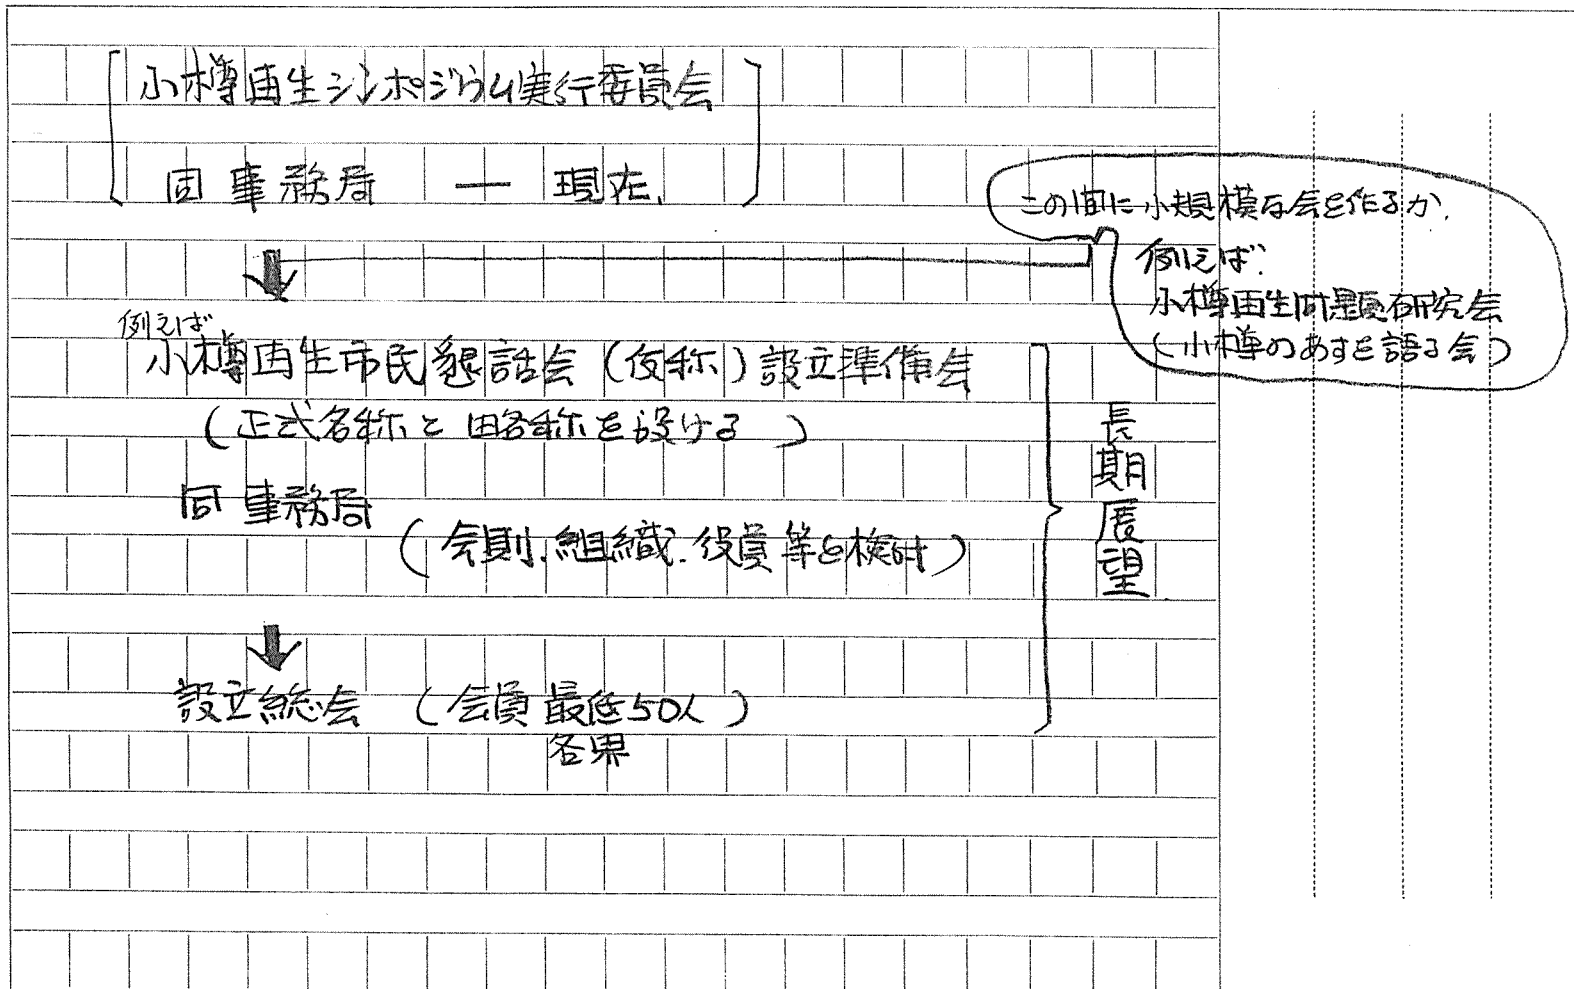 小樽再生シンポジウム実行委員会
同事務局 — 現在
この間に小規模な会を作るか.
例えば
小樽再生問題研究会
(小樽のあすを語る会)
例えば
小樽再生市民懇話会 (仮称) 設立準備会
(正式名称と略称を設ける )
同事務局
( 会則.組織.役員等を検討 )
設立総会 ( 会員 最低50人 )
各界
長期展望